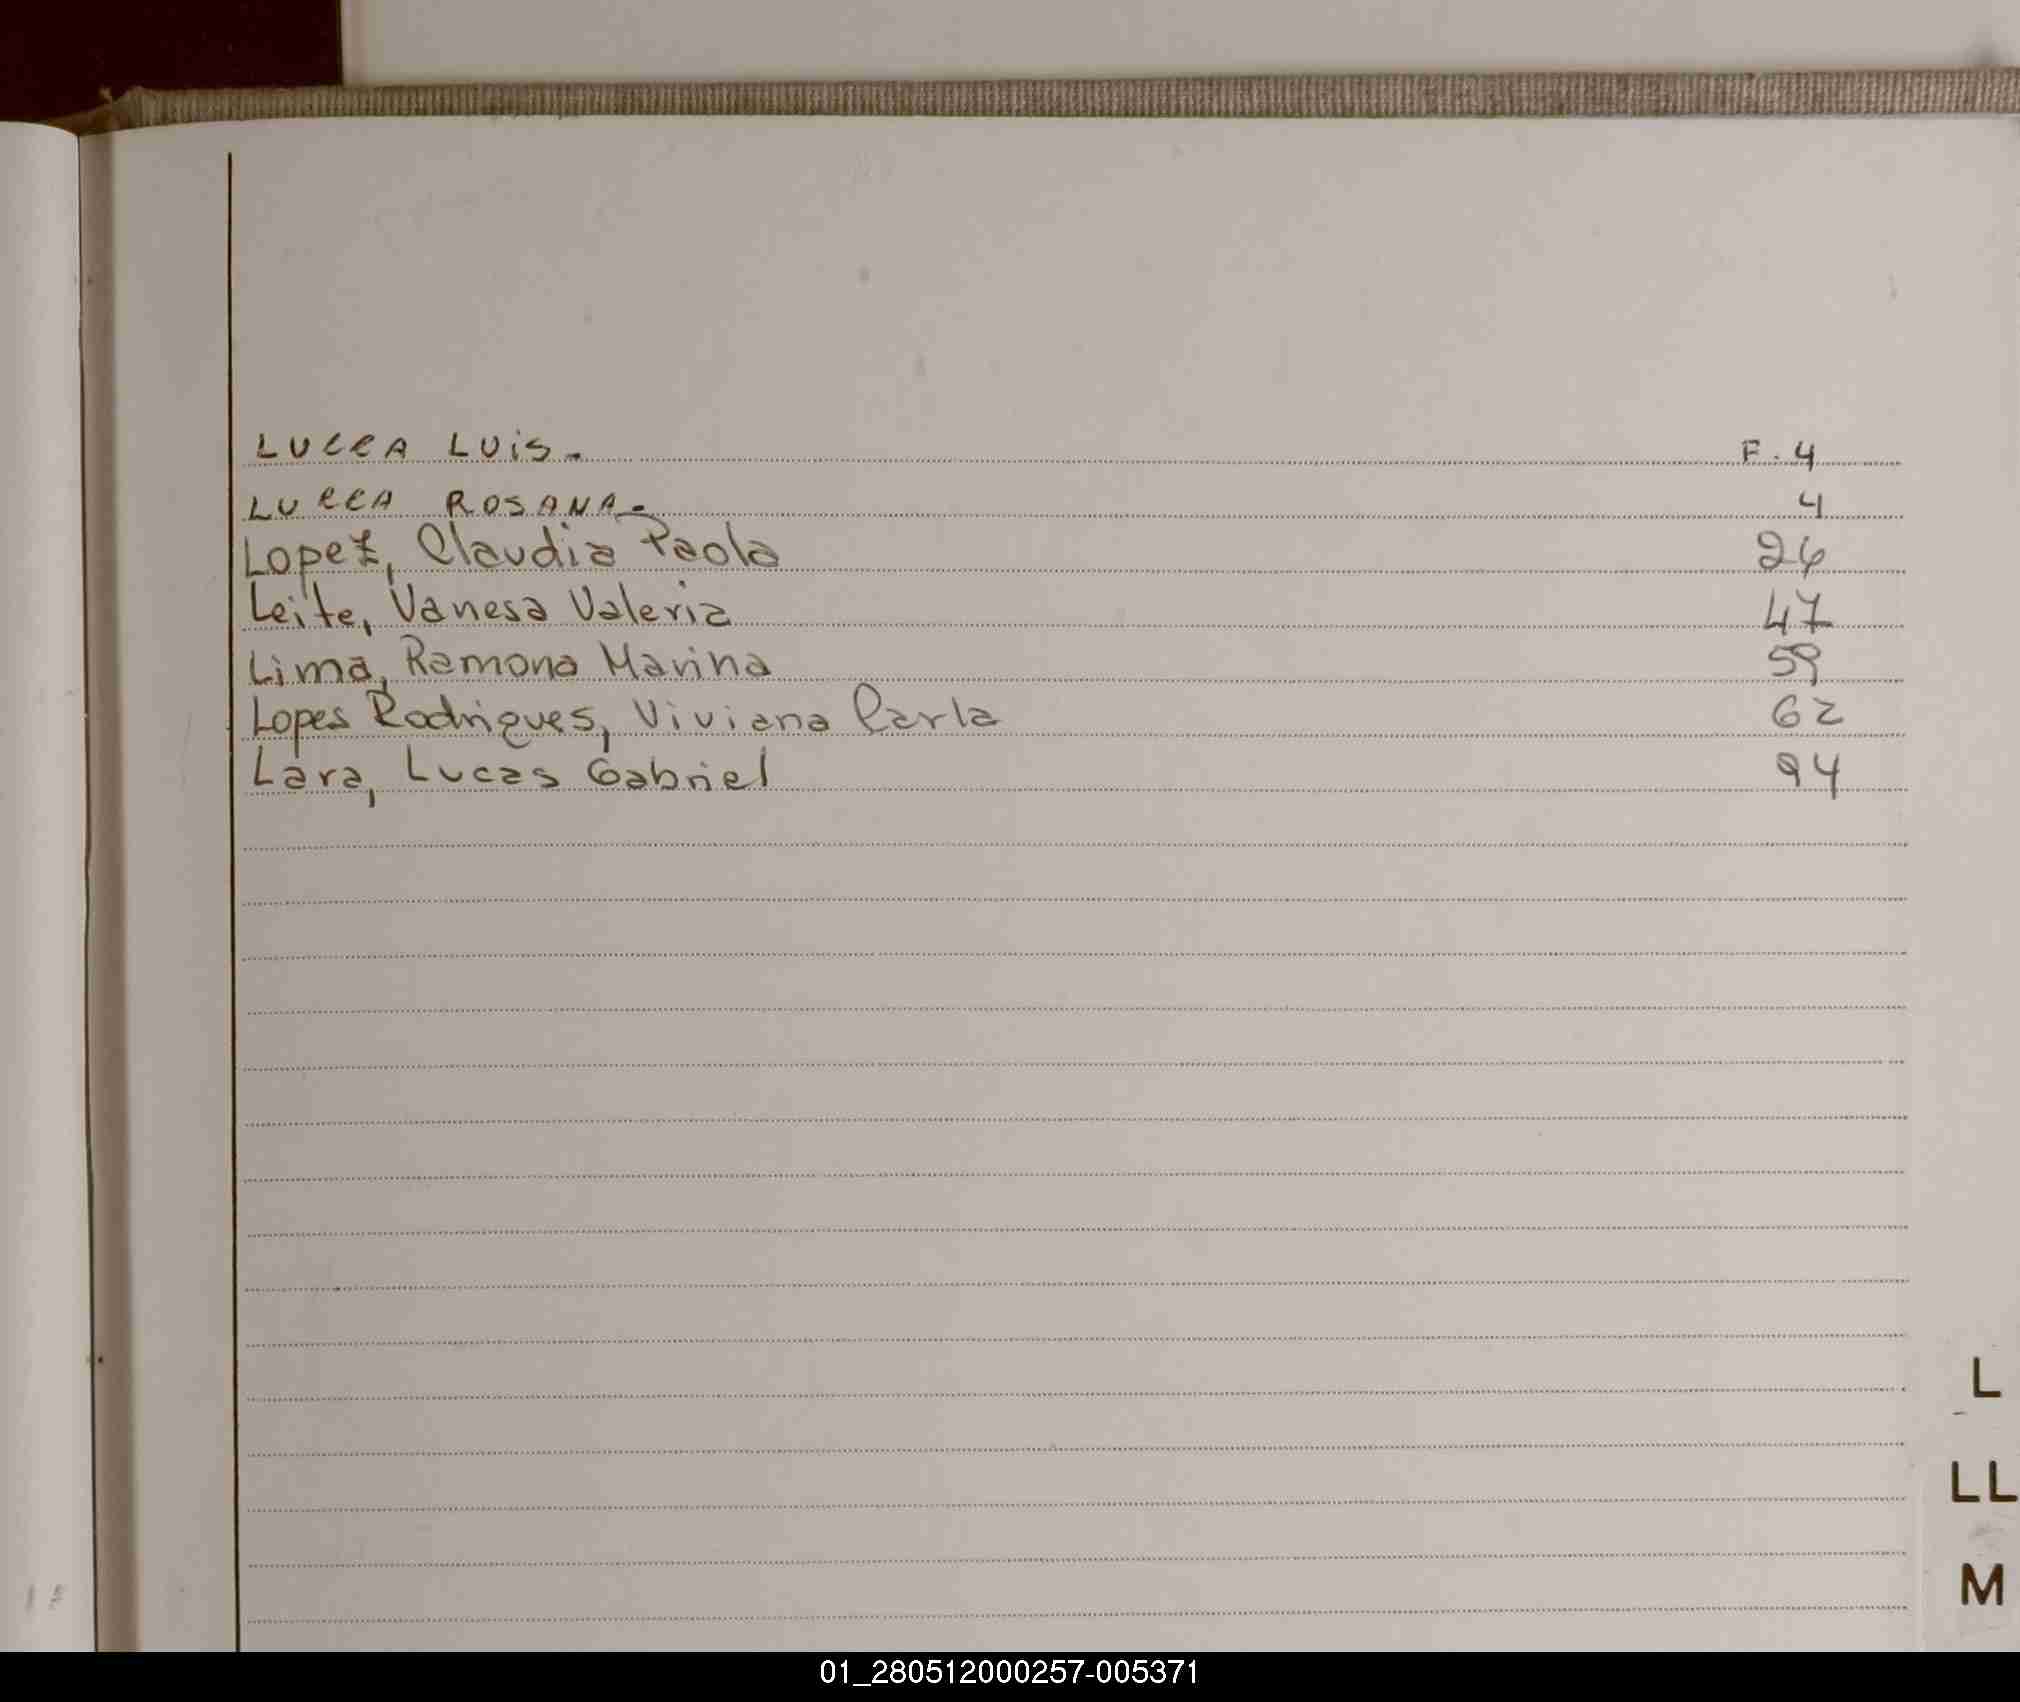 LUCCA LUIS.- F. 4
LUCCA ROSANA.- 4
Lopez, Claudia Paola 26
Leite, Vanesa Valeria 47
Lima, Ramona Marina 59
Lopes Rodrigues, Viviana Carla 62
Lara, Lucas Gabriel 94
L
LL
M
01_280512000257-005371